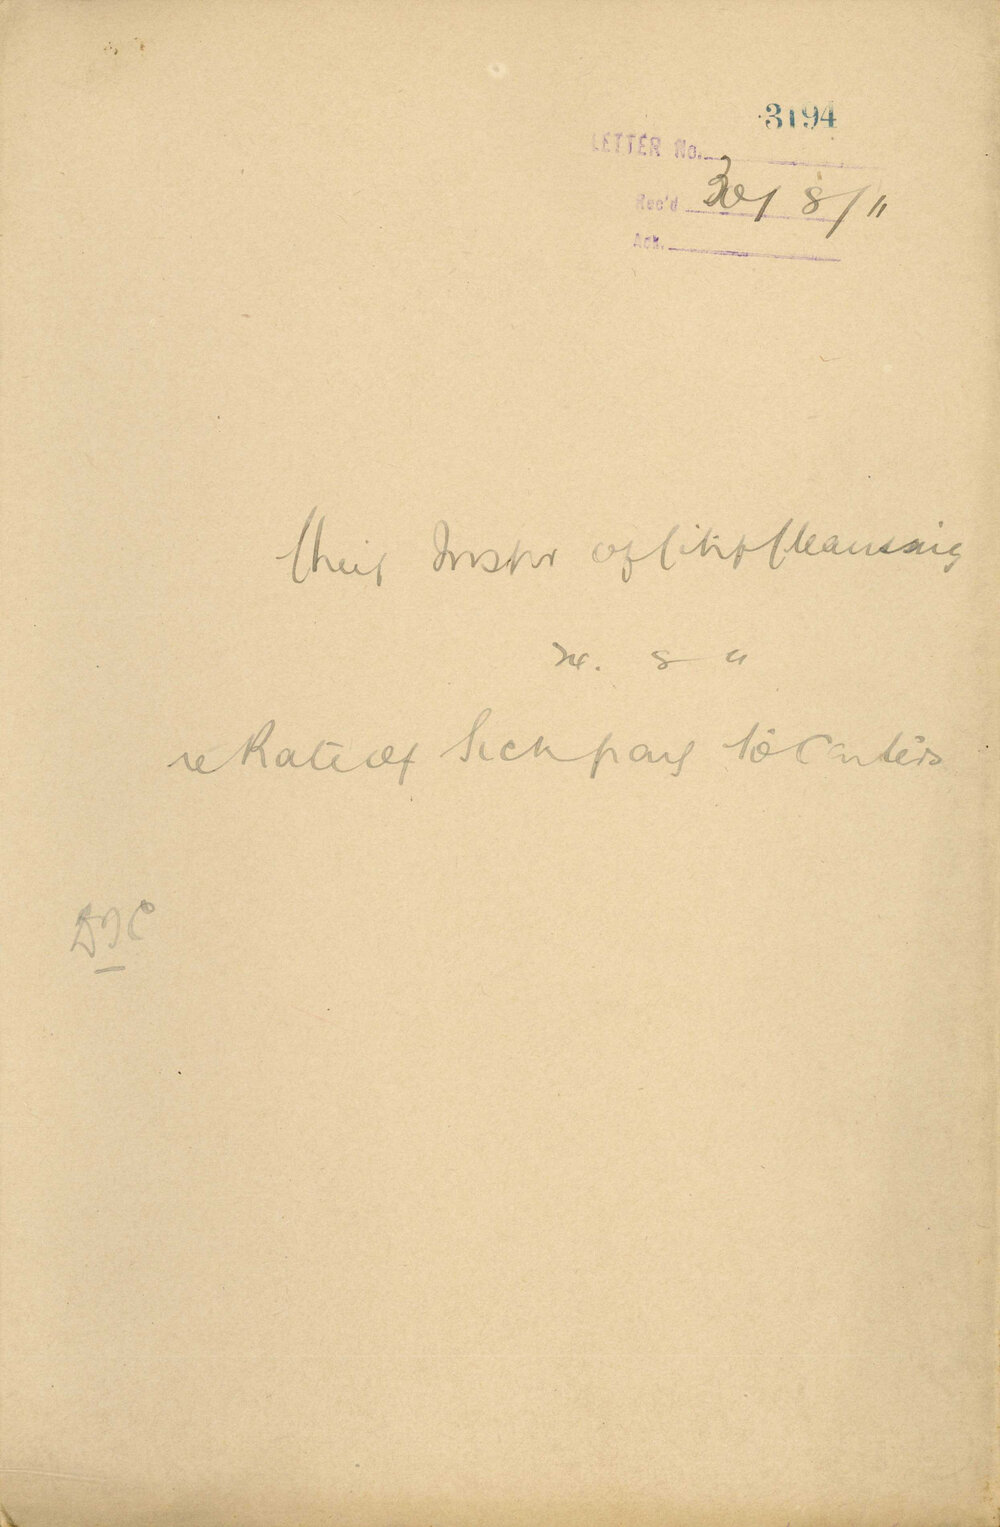 3194
LETTER No.
Rec'd 30/8/11
Ack.
Chief Inspr of City Cleansing
8 11
re Rate of Sick pay to Carters